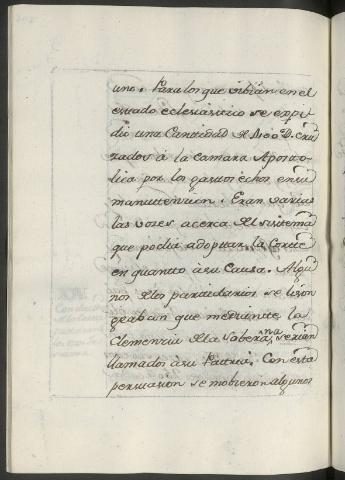 uno. Para los que vibian en el
estado eclesiastico se expi-
dio una Cantidad de D. Cru-
zados á la camara Aposto-
lica por los gastos echos en su
manutencion. Eran varias
las voses acerca del sistema
que podia adoptar la Corte
en quanto á su Causa. Algu-
nos de los partidarios se lison-
geaban que mediante la
Clemencia de la Soberana, serian
llamados á su Patria. Con esta
persuasion se mobieron algunos